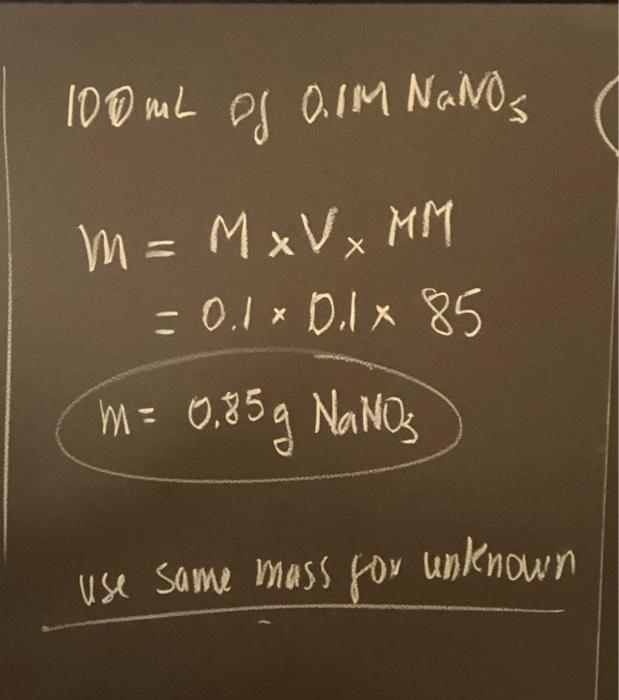 100mL of 0.1M NaNO3
m = M x V x MM
= 0.1 x 0.1 x 85
m = 0.85g NaNO3
use same mass for unknown